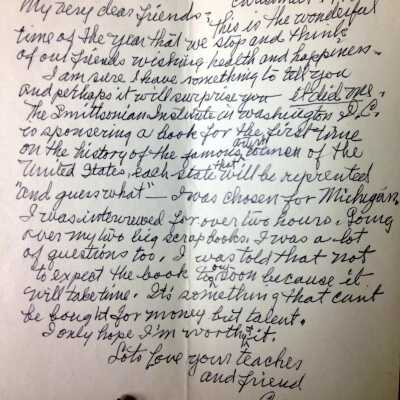 My very dear Friends-
This is the wonderful
time of the year that we stop and think
of our friends wishing health and happiness-
I am sure I have something to tell you
and perhaps it will surprise you it did me.
The Smithsonian Institute in Washington D.C.
is sponsering a book for the first time
on the history of the famous women of the
United States, each state that will be reprented
"and guess what" - I was chosen for Michigan.
I was interviewed for over two hours. Going
over my two big scrapbooks. I was a lot
of questions too. I was told that not
to expect the book out too soon because it
will take time. It's something that can't
be bought for money but talent.
I only hope I'm worth it.
Lots Love your teacher
and friend